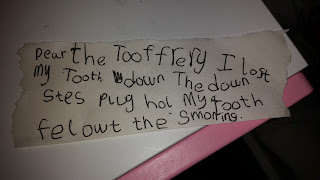 Dear the Tooffrery I lost
my Tooth down The down
stes plug hol My tooth
felowt the smorning.